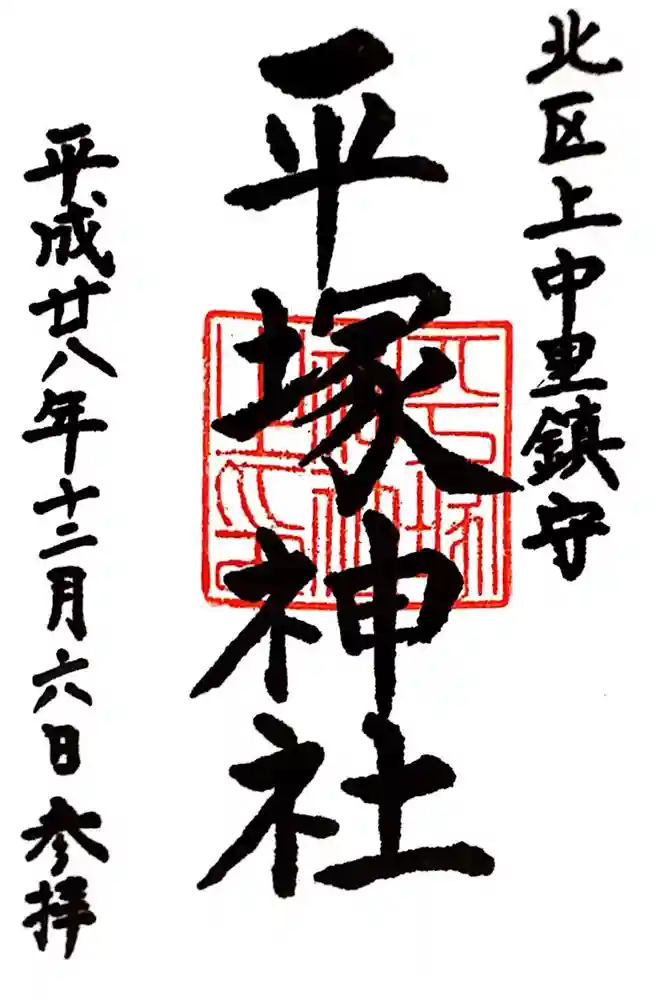 北区上中里鎮守
平塚神社
平成廿八年十二月六日参拝